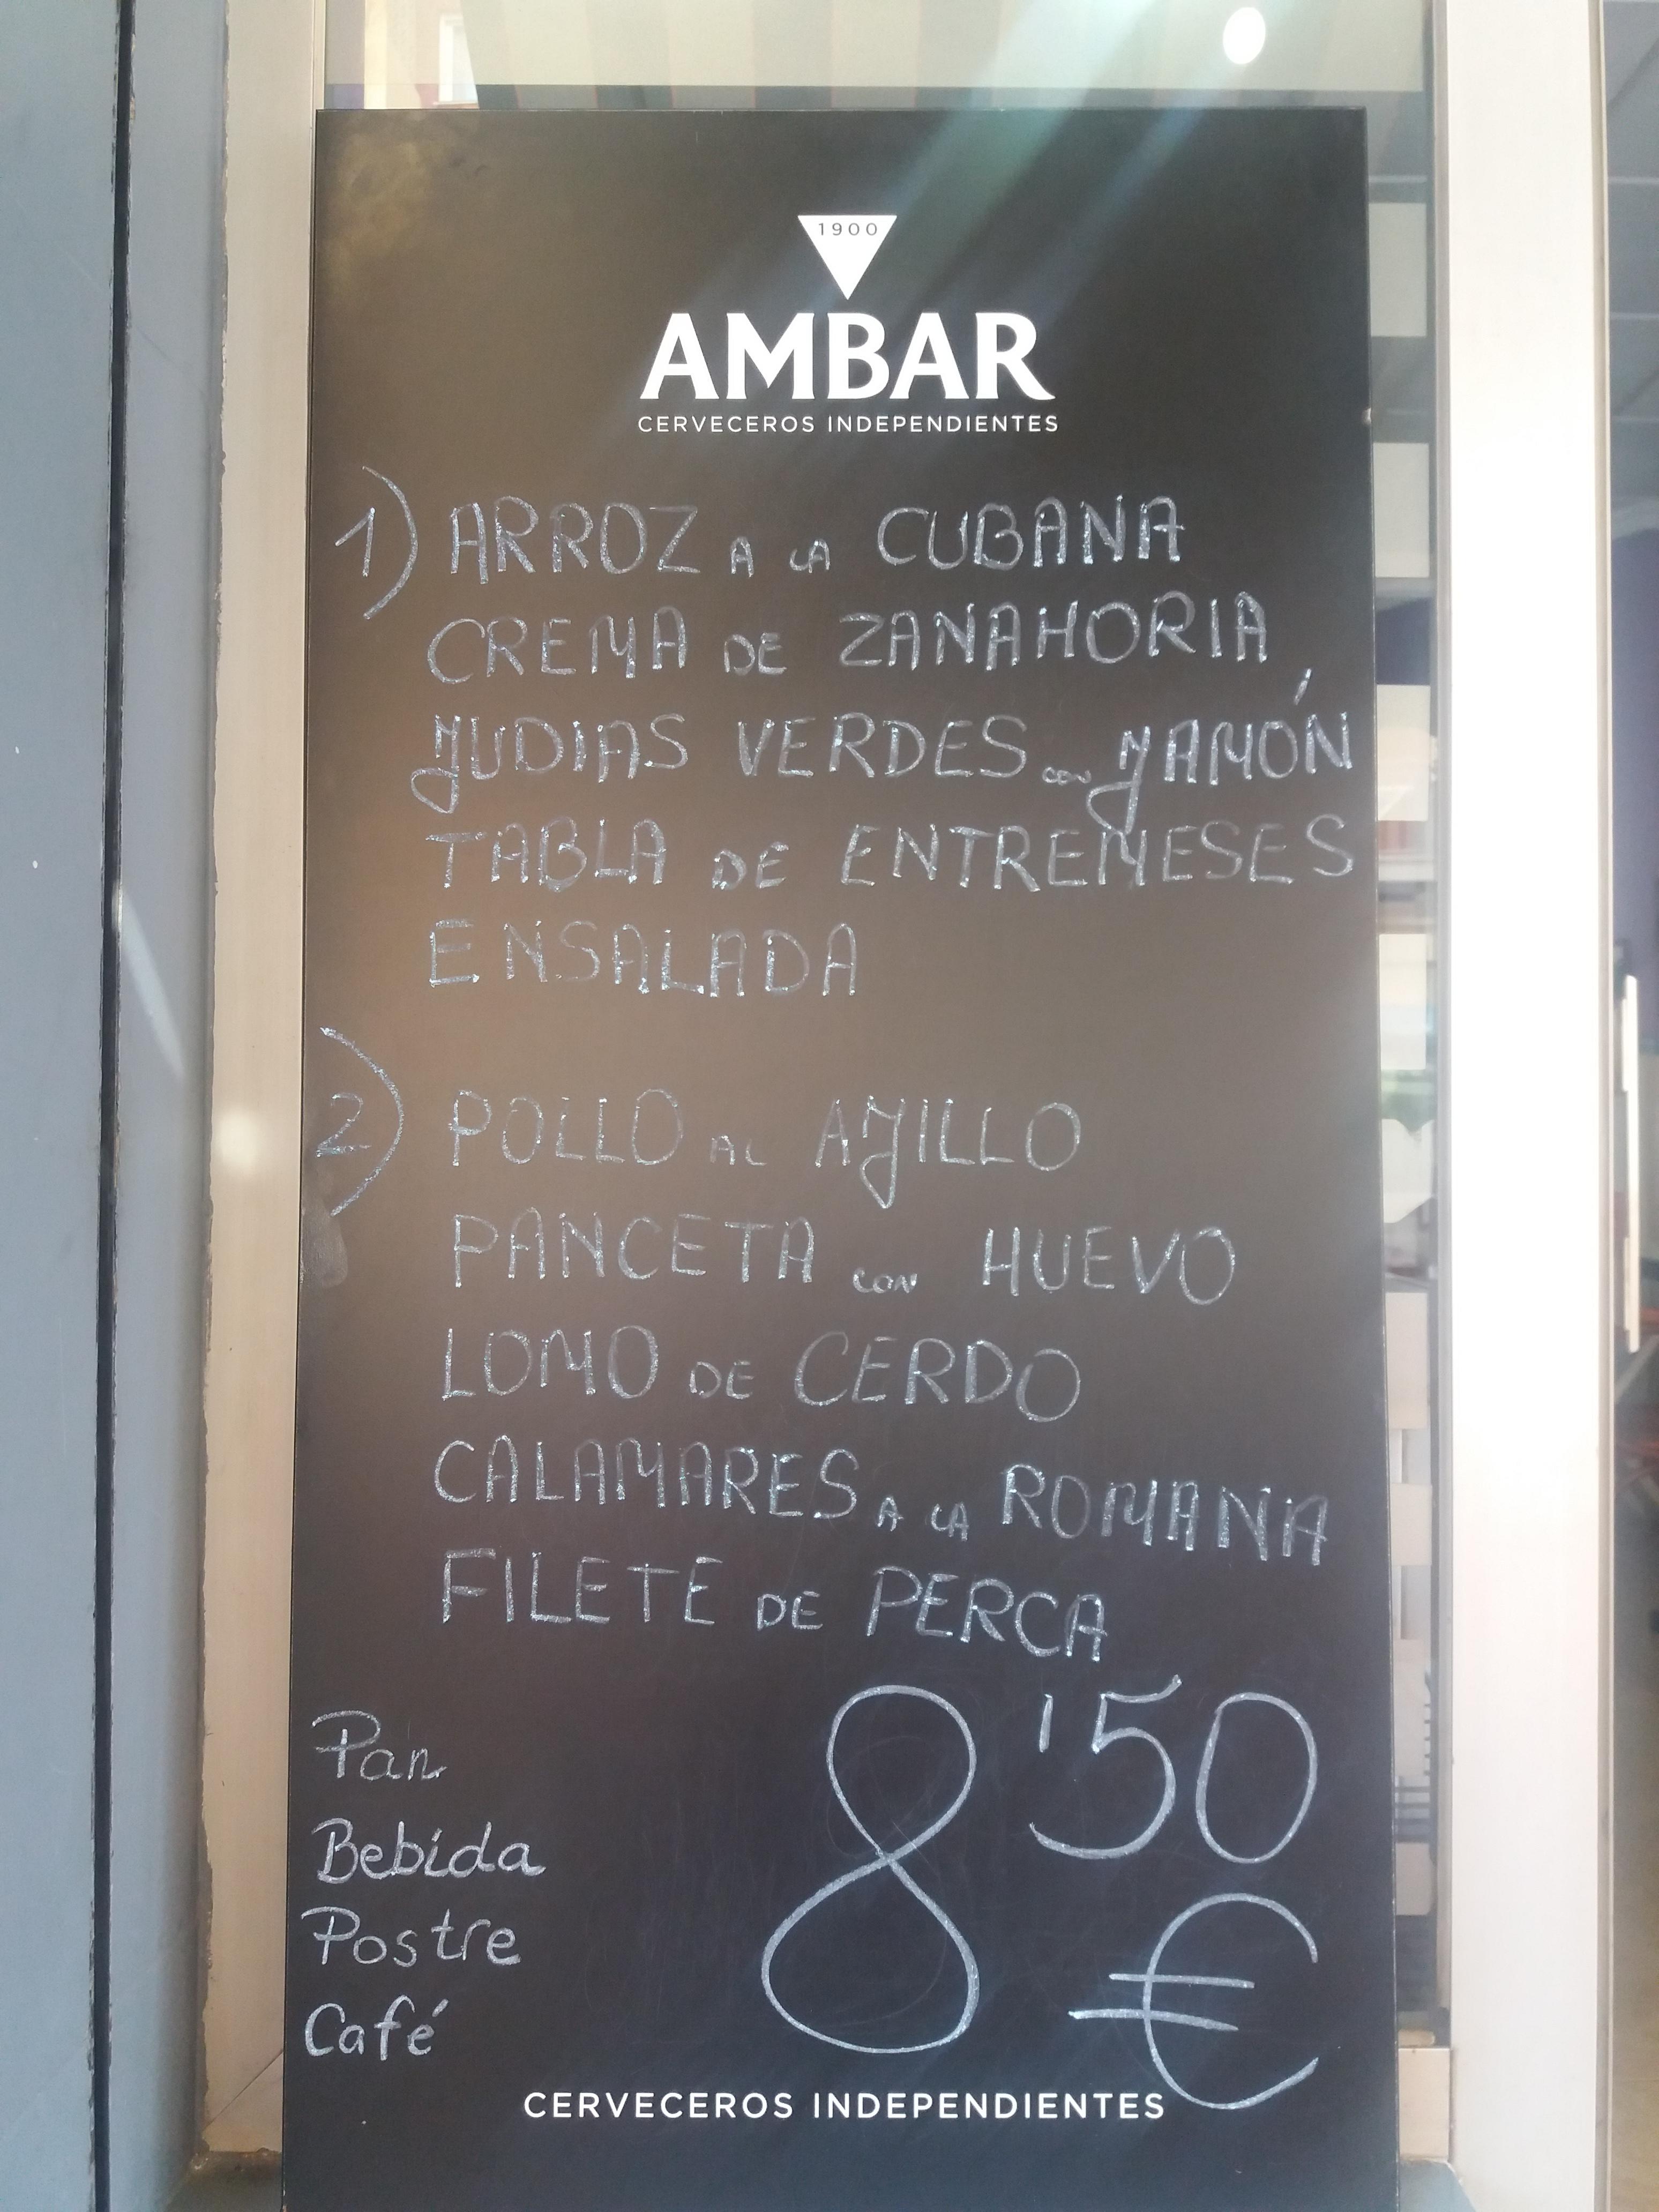 1900
AMBAR
CERVECEROS INDEPENDIENTES
1) ARROZ A LA CUBANA
CREMA DE ZANAHORIA
JUDIAS VERDES con JAMÓN
TABLA DE ENTREMESES
ENSALADA
2) POLLO AL AJILLO
PANCETA con HUEVO
LOMO DE CERDO
CALAMARES A LA ROMANA
FILETE DE PERCA
Pan
Bebida
Postre
Café
8'50
€
CERVECEROS INDEPENDIENTES